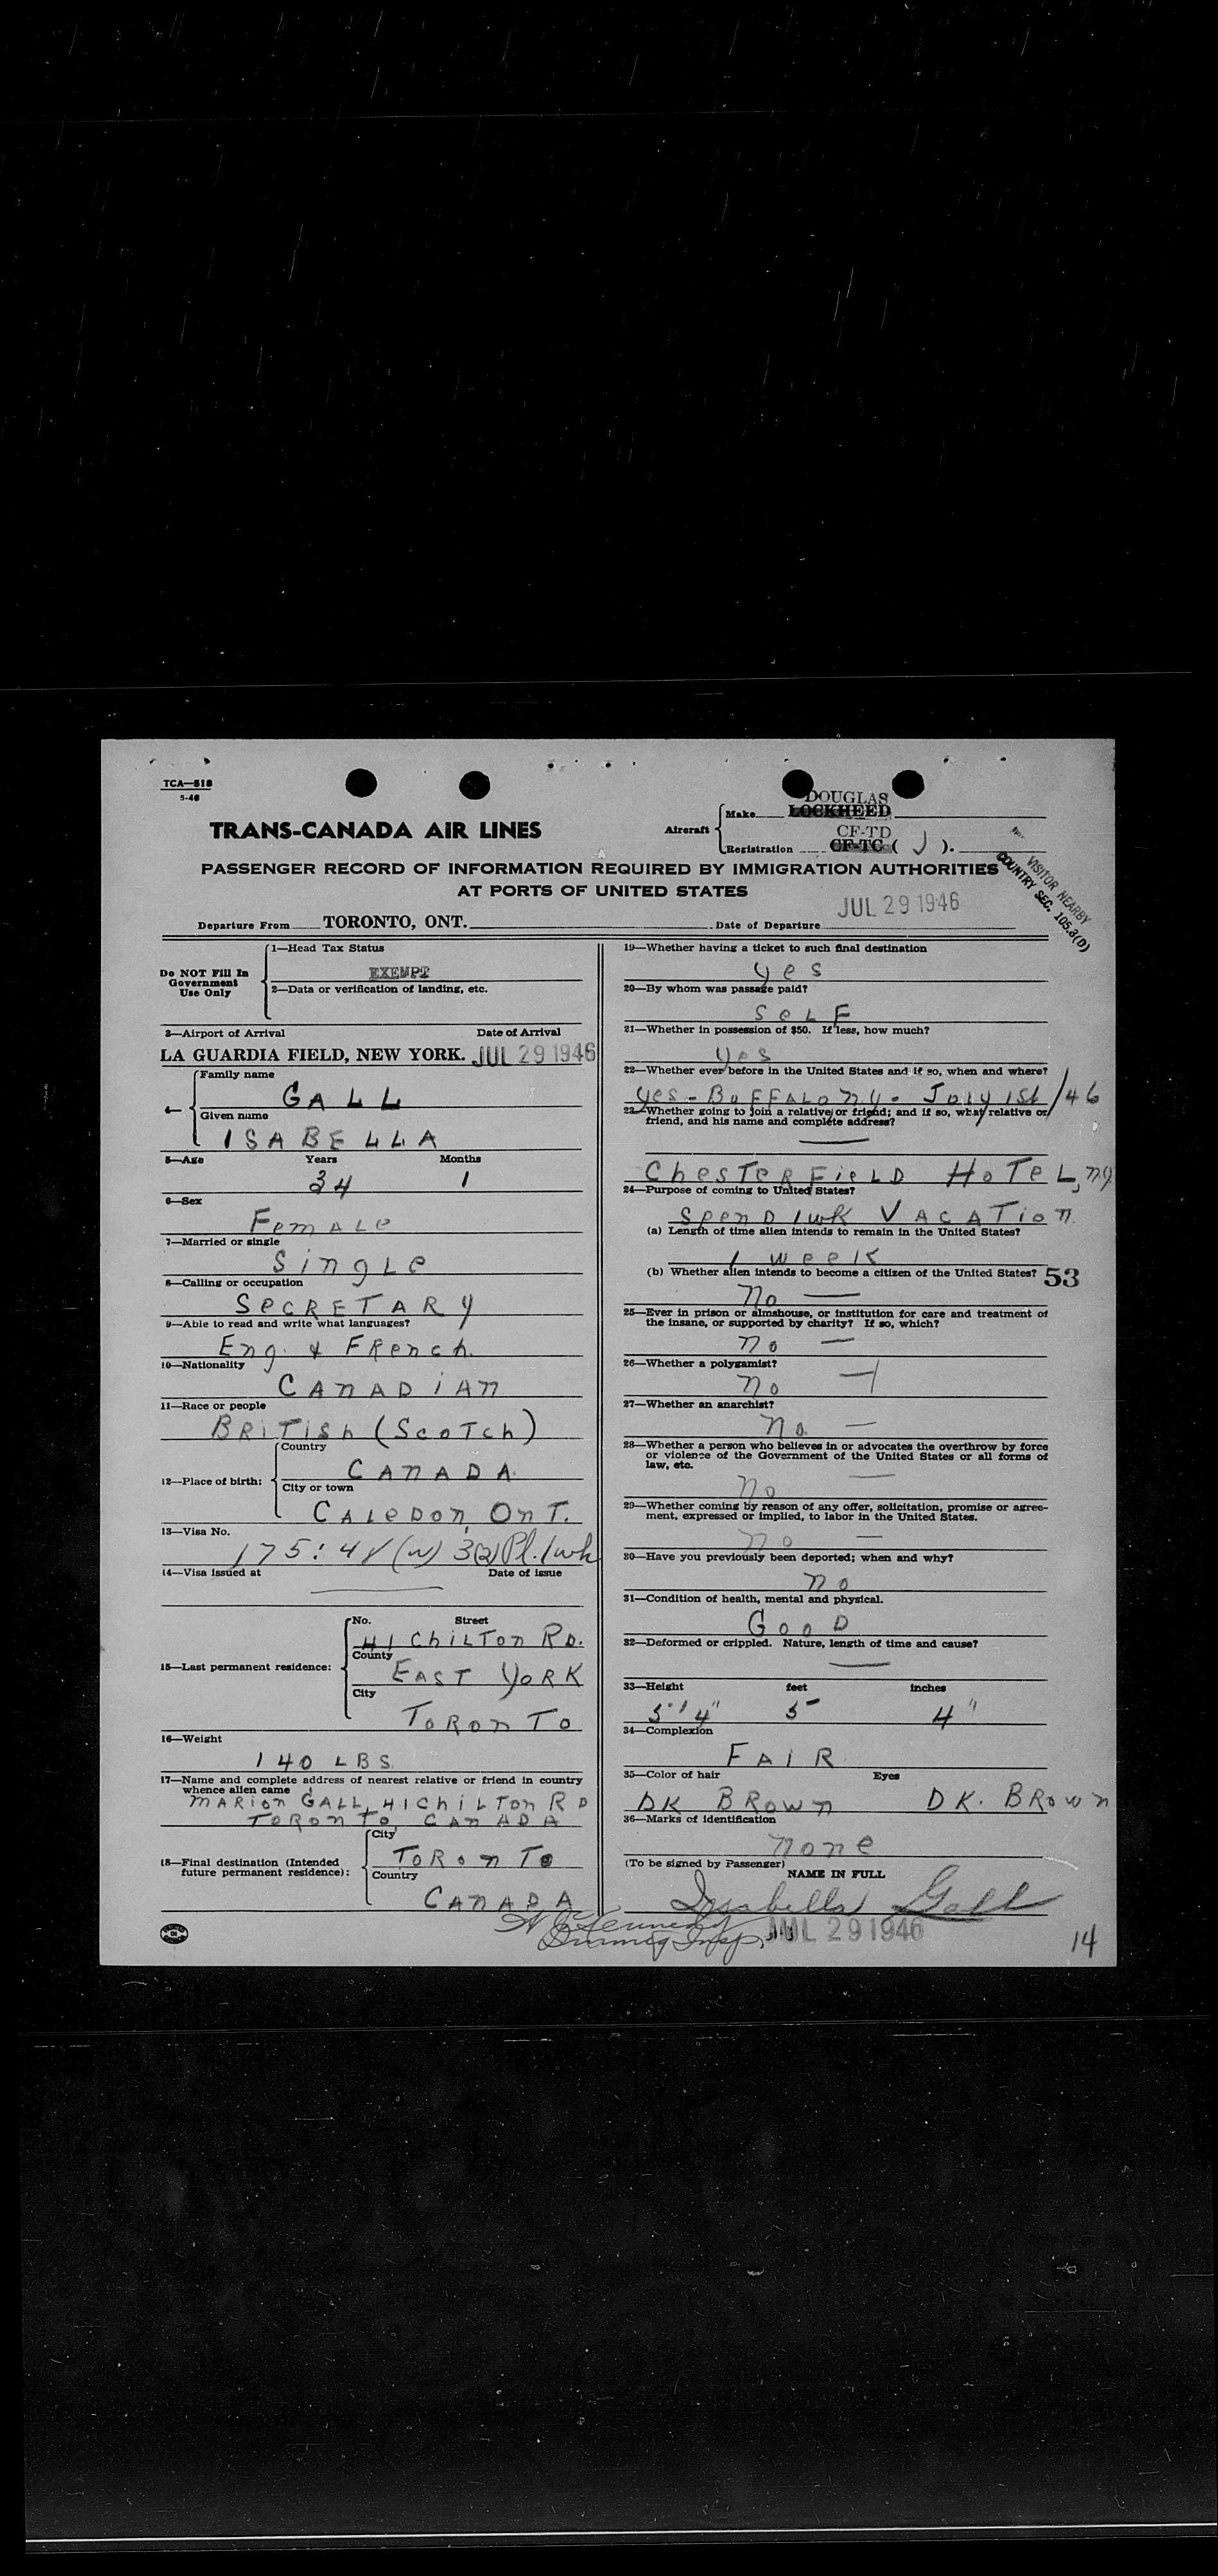 TCA—518
5-46
TRANS-CANADA AIR LINES
Aircraft
Make
DOUGLAS
LOCKHEED
Registration
CF-TD
CF-TC ( J ).
PASSENGER RECORD OF INFORMATION REQUIRED BY IMMIGRATION AUTHORITIES
AT PORTS OF UNITED STATES
VISITOR NEARBY
COUNTRY SEC. 105.3(D)
Departure From TORONTO, ONT.
Date of Departure JUL 29 1946
Do NOT Fill In
Government
Use Only
1—Head Tax Status
EXEMPT
2—Data or verification of landing, etc.
3—Airport of Arrival Date of Arrival
LA GUARDIA FIELD, NEW YORK. JUL 29 1946
4—
Family name
GALL
Given name
ISABELLA
5—Age Years Months
34 1
6—Sex
Female
7—Married or single
Single
8—Calling or occupation
SECRETARY
9—Able to read and write what languages?
Eng. & French
10—Nationality
CANADIAN
11—Race or people
BRITISh (ScoTch)
12—Place of birth:
Country
CANADA
City or town
CALEDON, ONT.
13—Visa No.
14—Visa issued at Date of issue
15—Last permanent residence:
No. Street
41 ChiLTon RD.
County
EAST YORK
City
TORONTO
16—Weight
140 LBS.
17—Name and complete address of nearest relative or friend in country
whence alien came
MARION GALL, 41 ChiLTon RD
TORONTO, CANADA
18—Final destination (Intended
future permanent residence):
City
TORONTO
Country
CANADA
19—Whether having a ticket to such final destination
yes
20—By whom was passage paid?
SELF
21—Whether in possession of $50. If less, how much?
yes
22—Whether ever before in the United States and if so, when and where?
yes - BUFFALO NY - July 1st/46
23—Whether going to join a relative or friend; and if so, what relative or
friend, and his name and complete address?
ChesTeRFieLD HoTeL, NY
24—Purpose of coming to United States?
Spend 1 wk VACATION
(a) Length of time alien intends to remain in the United States?
1 week
(b) Whether alien intends to become a citizen of the United States? 53
No —
25—Ever in prison or almshouse, or institution for care and treatment of
the insane, or supported by charity? If so, which?
no —
26—Whether a polygamist?
no —
27—Whether an anarchist?
no —
28—Whether a person who believes in or advocates the overthrow by force
or violence of the Government of the United States or all forms of
law, etc.
no —
29—Whether coming by reason of any offer, solicitation, promise or agree-
ment, expressed or implied, to labor in the United States.
no —
30—Have you previously been deported; when and why?
no
31—Condition of health, mental and physical.
GOOD
32—Deformed or crippled. Nature, length of time and cause?
33—Height feet inches
5' 4" 5 4"
34—Complexion
FAIR
35—Color of hair Eyes
DK BROWN DK. BROWN
36—Marks of identification
none
(To be signed by Passenger)
NAME IN FULL
Isabella Gall
Immig Insp. JUL 29 1946
14